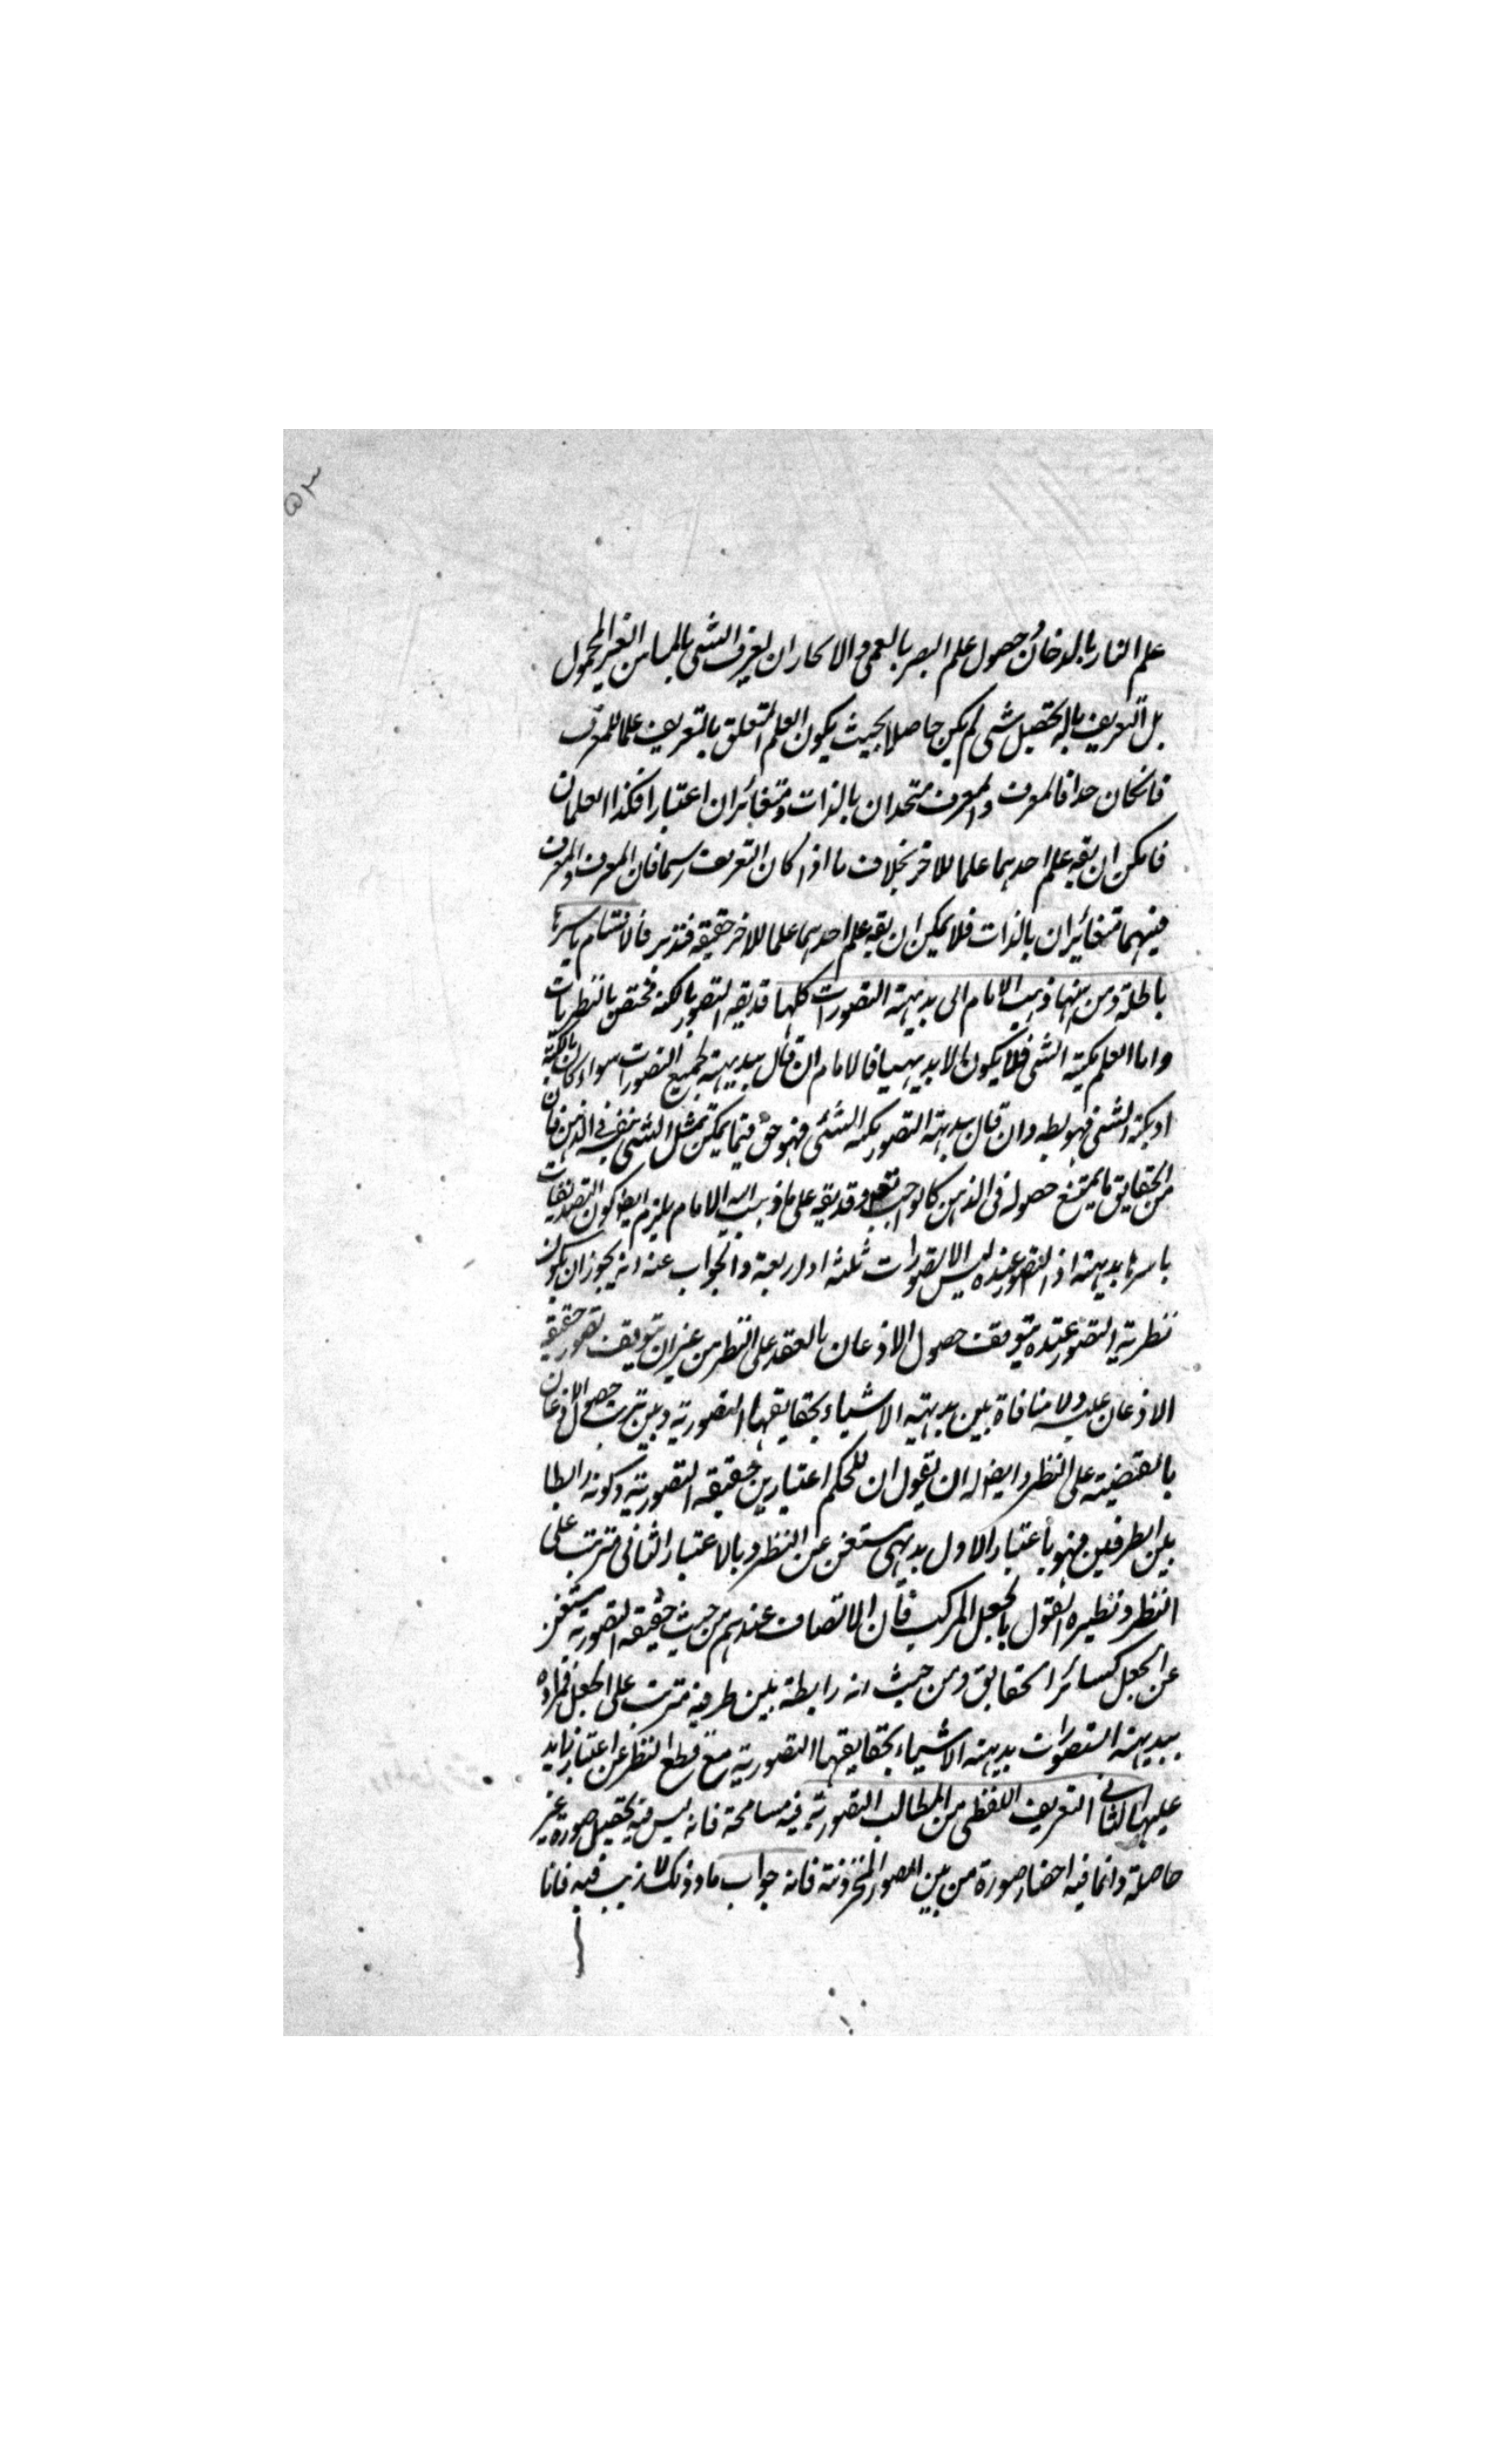 علم النار بالدخان وحصول علم البصر بالعمى والا لجاز ان يعرف الشى بالمباين الغير المحمول
بل التعريف باله تحصيل شى لم يكن حاصلا بحيث يكون العلم المتعلق بالتعريف علما للمعرف
فانكان حدا فالمعرف والمعرف متحدان بالذات ومتغائران اعتبارا فكذا العلمان
فامكن ان يقه علم احدهما علما للاخر بخلاف ما اذا كان التعريف رسما فان المعرف والمعرف
فيهما متغائران بالذات فلا يمكن ان يقه علم احدهما علما للاخر حقيقه فتدبر فالاقسام باسرها
باطلة ومن ههنا ذهب الامام الى بديهية التصورات كلها قد يقه التصور بالكنه مختص بالنظريات
واما العلم بكنه الشى فلا يكون الا بديهيا فالامام ان قال ببديهية جميع التصورات سواء كان بالكنه
او بكنه الشى فهو بط وان قال ببديهة التصور بكنه الشئى فهو حق فيما يمكن تمثل الشى بنفسه فى الذهن فان
من الحقايق ما يمتنع حصوله فى الذهن كالواجب تعه وقد يقه على ما ذهب اليه الامام يلزم ايضا كون التصديقات
باسرها بديهية اذ التصور عنده ليس الا تصورات ثلثه او اربعة والجواب عنه انه يجوز ان يكون
نظرية التصور عنده بتوقف حصول الاذعان بالعقد على النظر من غير ان يتوقف تصور حقيقه
الاذعان عليه ولا منافاة بين بديهية الاشياء بحقايقها التصورية وبين ترتب حصول الاذعان
بالقضية على النظر وايضا له ان يقول ان للحكم اعتبارين حقيقه التصورية وكونه رابطا
بين الطرفين فهو باعتبار الاول بديهى مستغن عن النظر وبالاعتبار الثانى مترتب على
النظر ونظيره القول بالجعل المركب فان الاتصاف عندهم من حيث حقيقه التصورية مستغن
عن الجعل كسائر الحقايق ومن حيث انه رابطة بين طرفيه مترتب على الجعل فمراده
ببديهية التصورات بديهة الاشياء بحقايقها التصورية مع قطع النظر عن اعتبار زايد
عليها الثانى التعريف اللفظى من المطالب التصورية فيه مسامحة فانه ليس فيه تحصيل صورة غير
حاصلة وانما فيه احضار صورة من بين الصور المخزونة فانه جواب ما وذلك لا ريب فيه فانا